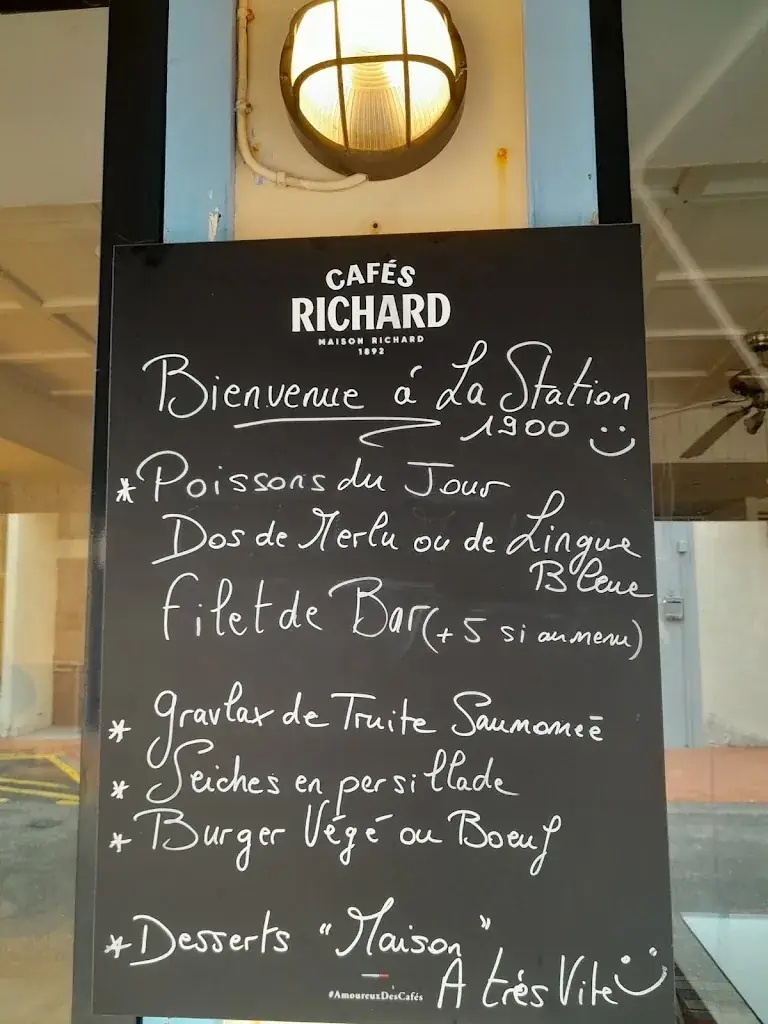 CAFÉS
RICHARD
MAISON RICHARD
1892
Bienvenue á La Station
1900
* Poissons du Jour
Dos de Merlu ou de Lingue
Bleue
filet de Bar (+ 5 si au menu)
* Gravlax de Truite Saumoneé
* Seiches en persillade
* Burger Végé ou Boeuf
* Desserts "Maison"
A trés Vite
#AmoureuxDesCafés